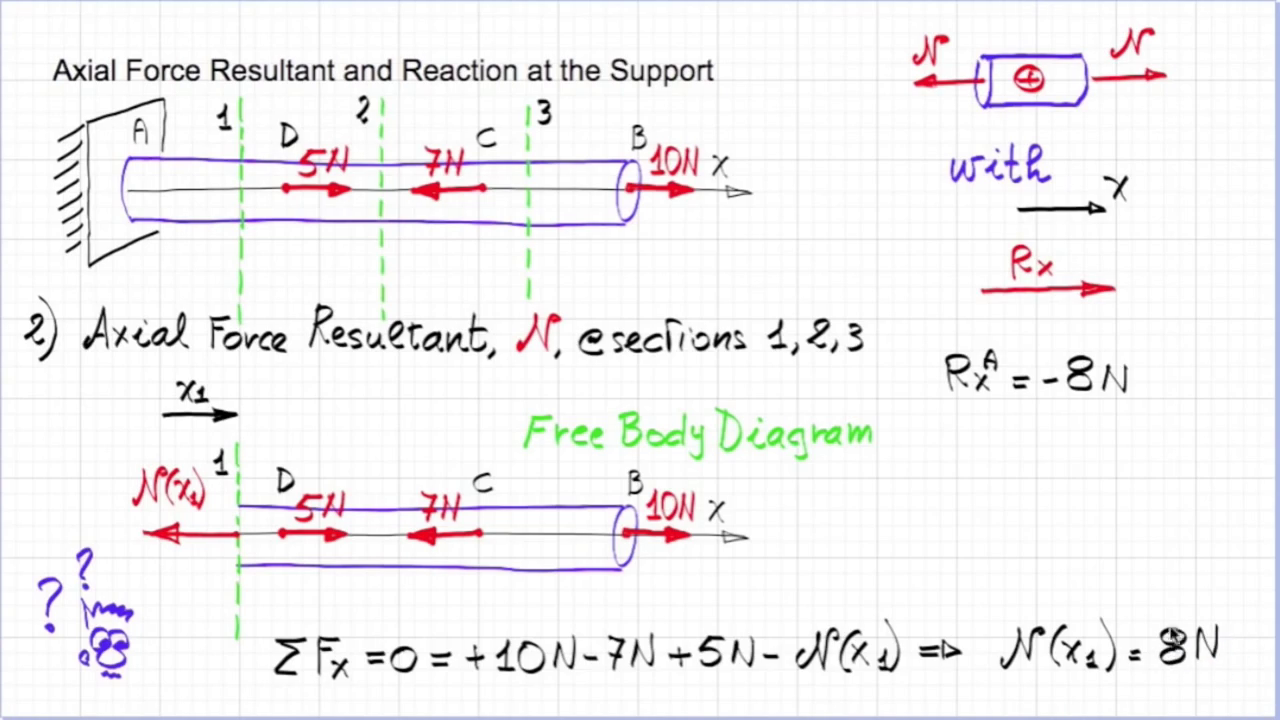 Axial Force Resultant and Reaction at the Support
N + N
A 1 D 5N 2 7N C 3 B 10N x
with x
Rx
2) Axial Force Resultant, N, @sections 1,2,3
RxA = -8N
x1
Free Body Diagram
N(x1) 1 D 5N 7N C B 10N x
? ?
ΣFx =0= +10N-7N+5N- N(x1) => N(x1) = 8N